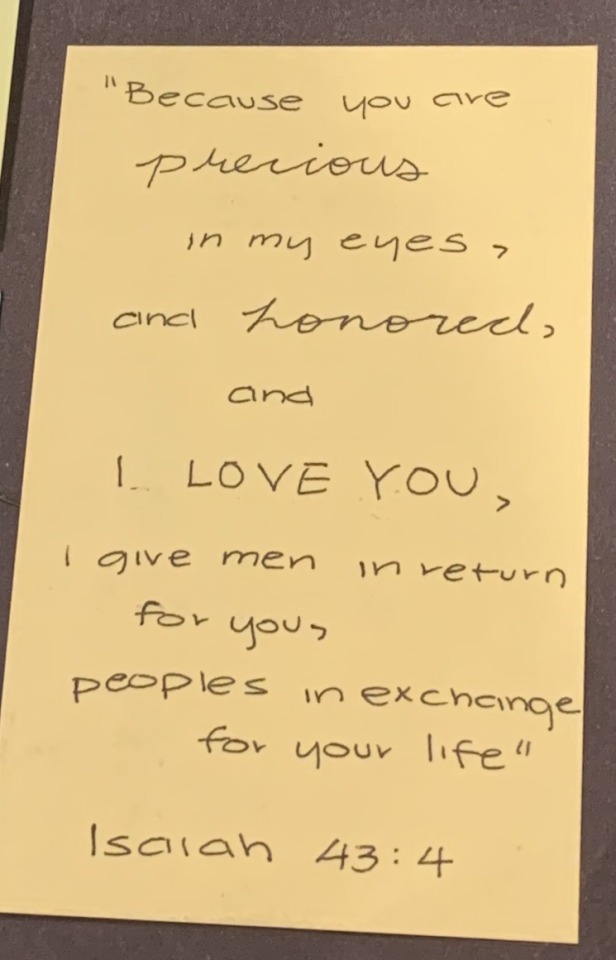 "Because you are
precious
in my eyes,
and honored,
and
I LOVE YOU,
I give men in return
for you,
peoples in exchange
for your life"
Isaiah 43:4